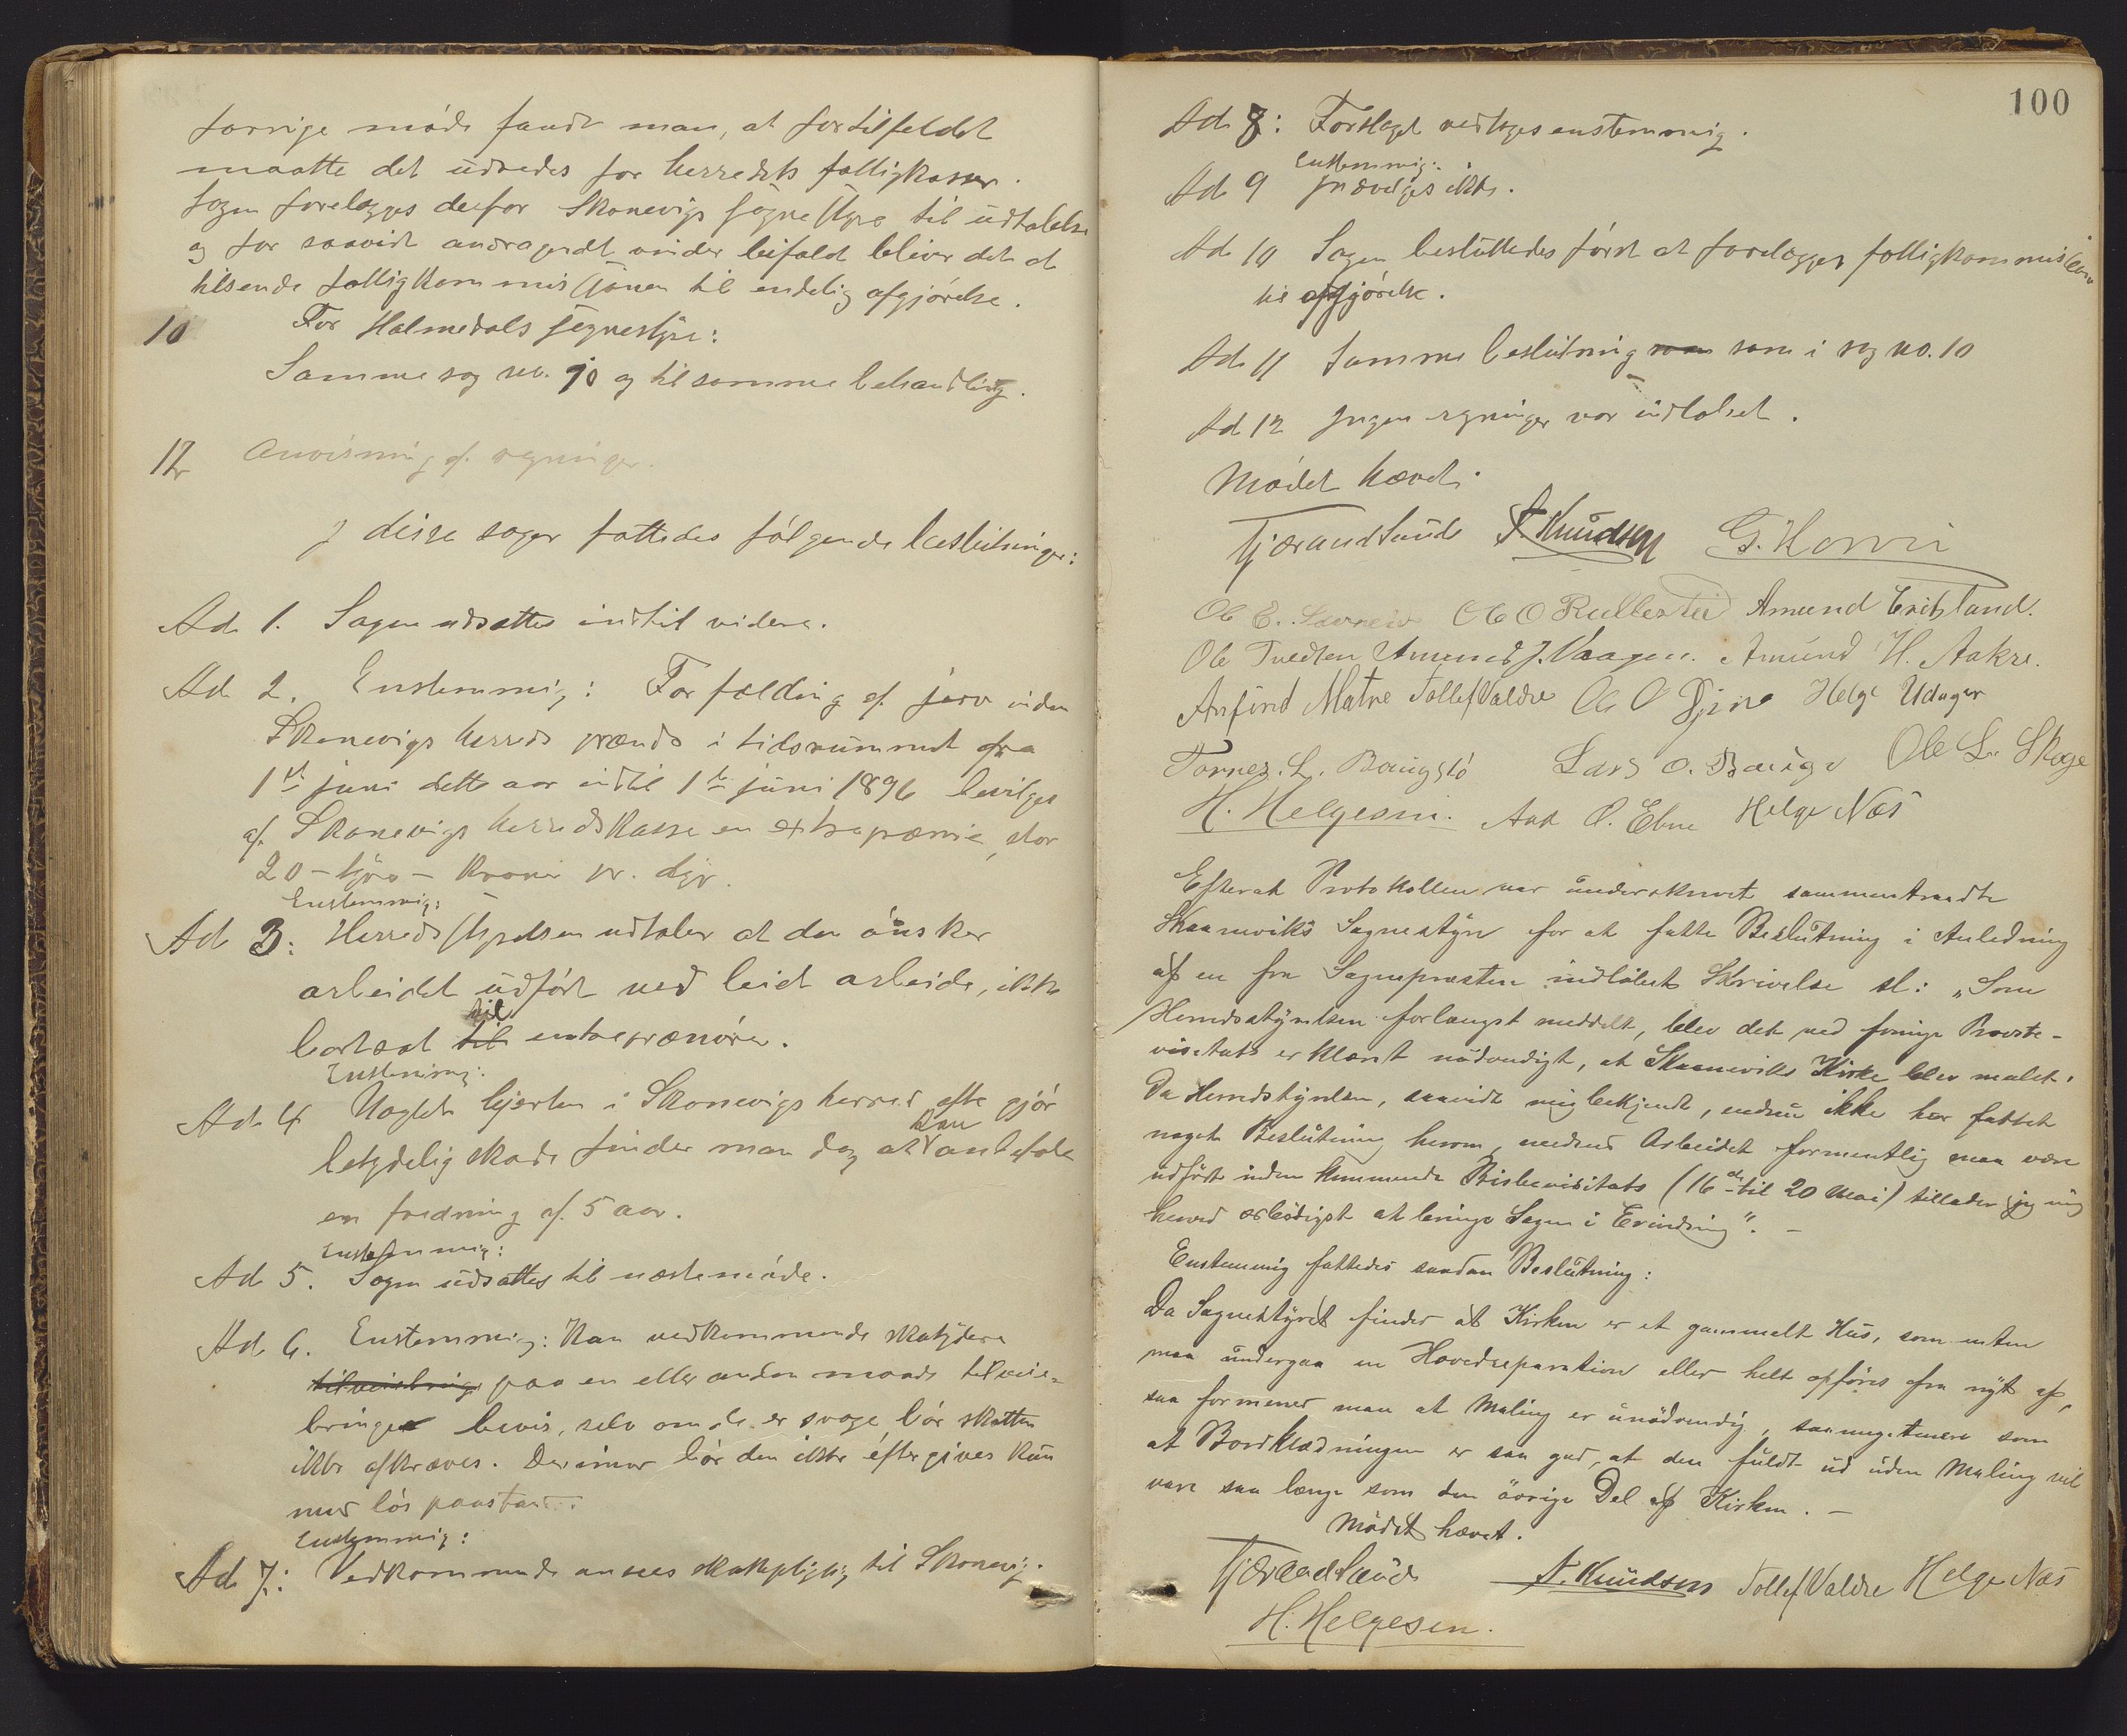 forrige møde fandt man, at fortilfeldet
maatte det udredes for herredets fattigkasser.
Sagen forelægges derfor Skonevigs sognestyre til udtalelse
og for saavidt andragendet vinder bifald bliver det at
tilsende fattigkommissjonen til endelig afgjørelse.
10 For Holmedals sognestyre:
Samme sag no. 10 og til samme behandling.
12 Anvisning af regninger.
I disse sager fattedes følgende beslutninger:
Ad. 1. Sagen udsattes indtil videre.
Ad. 2. Enstemmig: For fælding af jerv inden
Skonevigs herreds grænds i tidsrummet fra
1ste juni dette aar indtil 1ste juni 1896 bevilges
af Skonevigs herredskasse en extrapræmie, stor
20 - tyve - kroner pr. dyr.
Enstemmig:
Ad 3: Herredsstyrelsen udtaler at den ønsker
arbeidet udført ved leiet arbeide, ikke
til
bortsat til entreprenører.
Enstemmig:
Ad. 4 Uagtet hjorten i Skonevigs herred ofte gjør
kan
betydelig skade finder man dog at anbefale
en fredning af 5 aar.
Enstemmig:
Ad. 5. Sagen udsattes til næste møde.
Ad. 6. Enstemmig: Kan vedkommende skatydere
tilveiebringe paa en eller anden maade tilveie-
bringe bevis, selv om de er svage, bør skatten
ikke afkræves. Derimod bør den ikke eftergives kun
med løs paastand.
Enstemmig:
Ad. 7: Vedkommende ansees skatepligtig til Skonevig.
100
Ad. 8: Forslaget vedtoges enstemmig.
Enstemmig:
Ad. 9 Indvilges ikke.
Ad. 10 Sagen besluttedes først at forelægges fattigkommissionen
til afgjørelse.
Ad. 11 Samme beslutning som i sag no. 10
Ad. 12 Ingen regninger var indløbet.
Mødet hævet.
Tjærand Sunde A. Knudsen G. Horvei
Ole E. Ole O Rullestad Amund Eritsland.
Ole Tvedten Amund J. Vaagen. Amund H. Aakre.
Anfind Matre Tollef Valdre Ole O Helge Udager
Tornes. L. Baugstø Lars O. Bauge Ole L. Skoge
H. Helgesen. Aad O. Ebne Helge Næs
Efterat Protokollen var underskrevet sammentraadte
Skaaneviks Sognestyre for at fatte Beslutning i Anledning
af en fra Sognepræsten indløbet Skrivelse sl: „Som
Herredsstyrelsen forlængst meddelt, blev det ved forrige Provste-
visitats erklæret nødvendigt, at Skaaneviks Kirke blev malet.
Da Herredstyrelsen, saavidt mig bekjendt, endnu ikke har fattet
noget Beslutning herom, medens Arbeidet formentlig maa være
udført inden kommende Bispevisitats (16de til 20 Mai) tillader jeg mig
herved ærbødigst at bringe Sagen i Erindring". -
Enstemmig fattedes saadan Beslutning:
Da Sognestyret finder at Kirken er et gammelt Hus, som enten
maa undergaa en Hovedreparation eller helt opføres fra nyt af,
saa formener man at Maling er unødvendig, saameget mere som
at Bordklædningen er saa god, at den fuldt ud uden Maling vil
vare saa længe som den øvrige Del af Kirken. -
Mødet hævet.
Tjærand Sunde A. Knudsen Tollef Valdre Helge Næs
H. Helgesen.